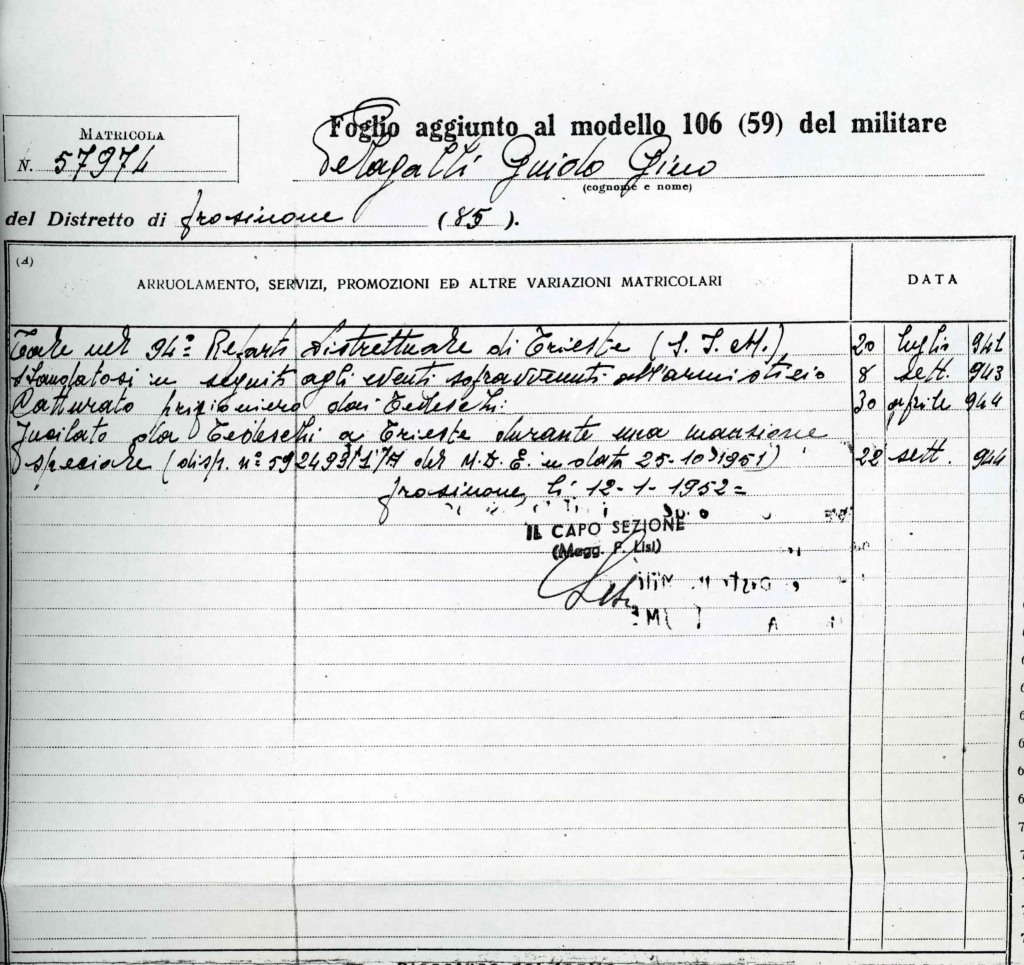 Foglio aggiunto al modello 106 (59) del militare
MATRICOLA
N. 57974
Pelagalli Guido Gino
(cognome e nome)
del Distretto di Frosinone (85).
(A)
ARRUOLAMENTO, SERVIZI, PROMOZIONI ED ALTRE VARIAZIONI MATRICOLARI
DATA
Tale nel 94º Reparto Distrettuale di Trieste (S.I.M.) 20 luglio 941
Sbandatosi in seguito agli eventi sopravvenuti all'armistizio 8 sett. 943
Catturato prigioniero dai Tedeschi 30 aprile 944
Fucilato da Tedeschi a Trieste durante una mansione
speciale (disp. nº 592493/1/A del M.D.E. in data 25-10-1951) 22 sett. 944
Frosinone, lì 12-1-1952=
IL CAPO SEZIONE
(Magg. F. Lisi)
Lisi